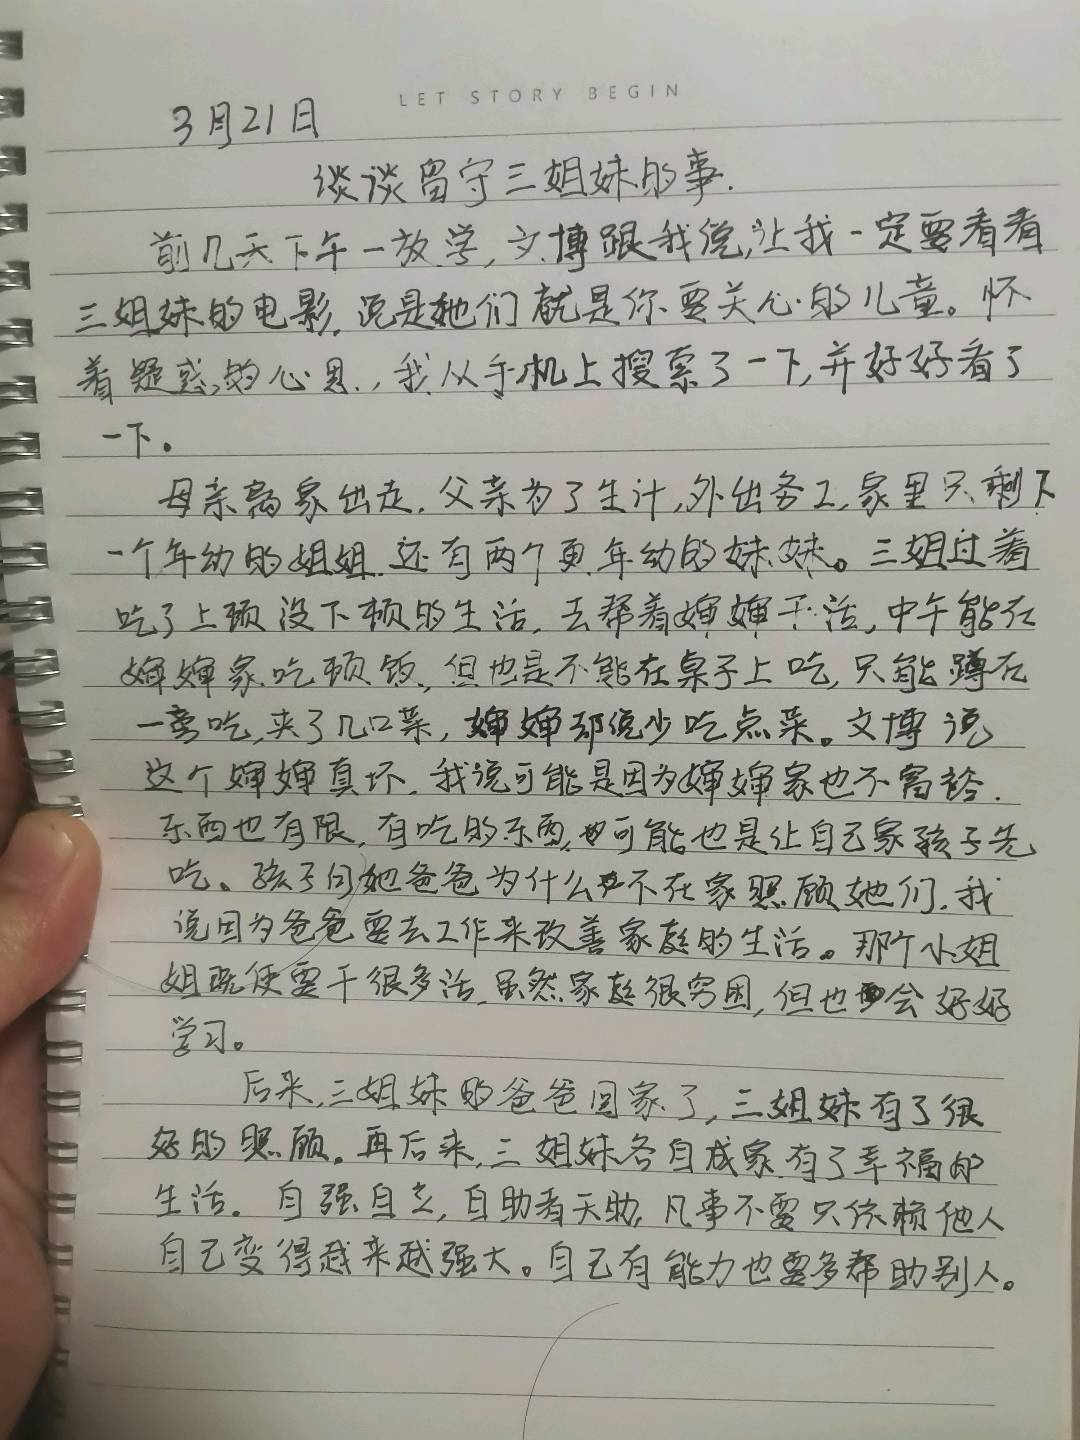 LET STORY BEGIN
3月21日
谈谈留守三姐妹的事.
前几天下午一放学,文博跟我说,让我一定要看看
三姐妹的电影,说是她们就是你要关心的儿童。怀
着疑惑的心思,我从手机上搜索了一下,并好好看了
一下。
母亲离家出走,父亲为了生计,外出务工,家里只剩下
一个年幼的姐姐.还有两个更年幼的妹妹。三姐过着
吃了上顿没下顿的生活,去帮着婶婶干活,中午能在
婶婶家吃顿饭,但也是不能在桌子上吃,只能蹲在
一旁吃,夹了几口菜,婶婶却说少吃点菜。文博说
这个婶婶真坏,我说可能是因为婶婶家也不富裕.
东西也有限,有吃的东西,也可能也是让自己家孩子先
吃。孩子问她爸爸为什么不在家照顾她们,我
说因为爸爸要去工作来改善家庭的生活。那个小姐
姐既使要干很多活,虽然家庭很穷困,但也会好好
学习。
后来,三姐妹的爸爸回家了,三姐妹有了很
好的照顾。再后来,三姐妹各自成家.有了幸福的
生活。自强自立,自助者天助,凡事不要只依赖他人
自己变得越来越强大。自己有能力也要多帮助别人。